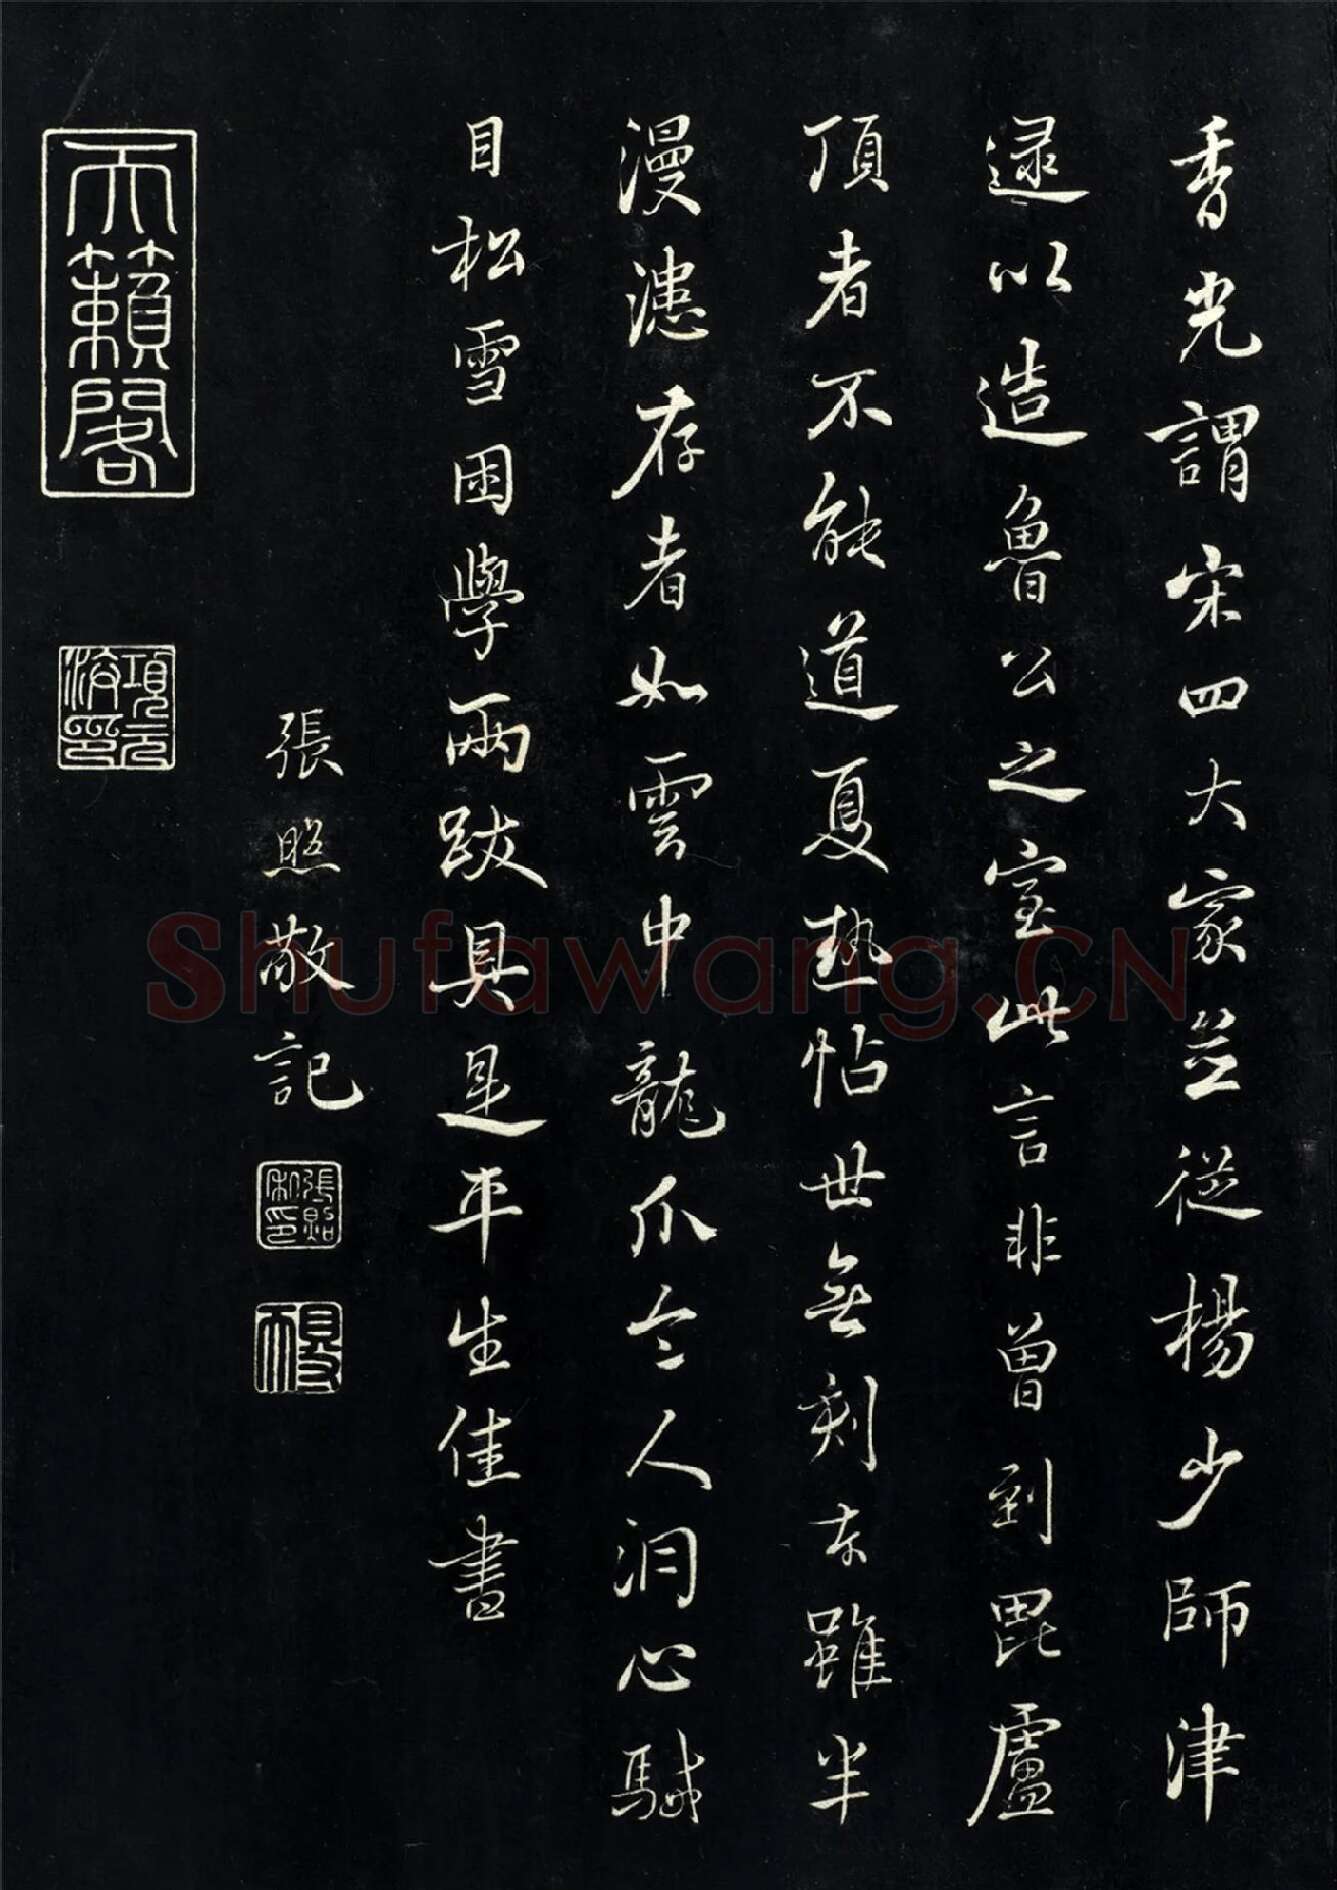 香光謂宋四大家並從楊少師津
逮以造魯公之室此言非曾到毘盧
頂者不能道夏熱帖世無刻本雖半
漫漶存者如雲中龍爪令人洞心駴
目松雪困學兩跋具是平生佳書
張照敬記
張照私印
得天
天籟閣
項元汴印
Shufawang.CN